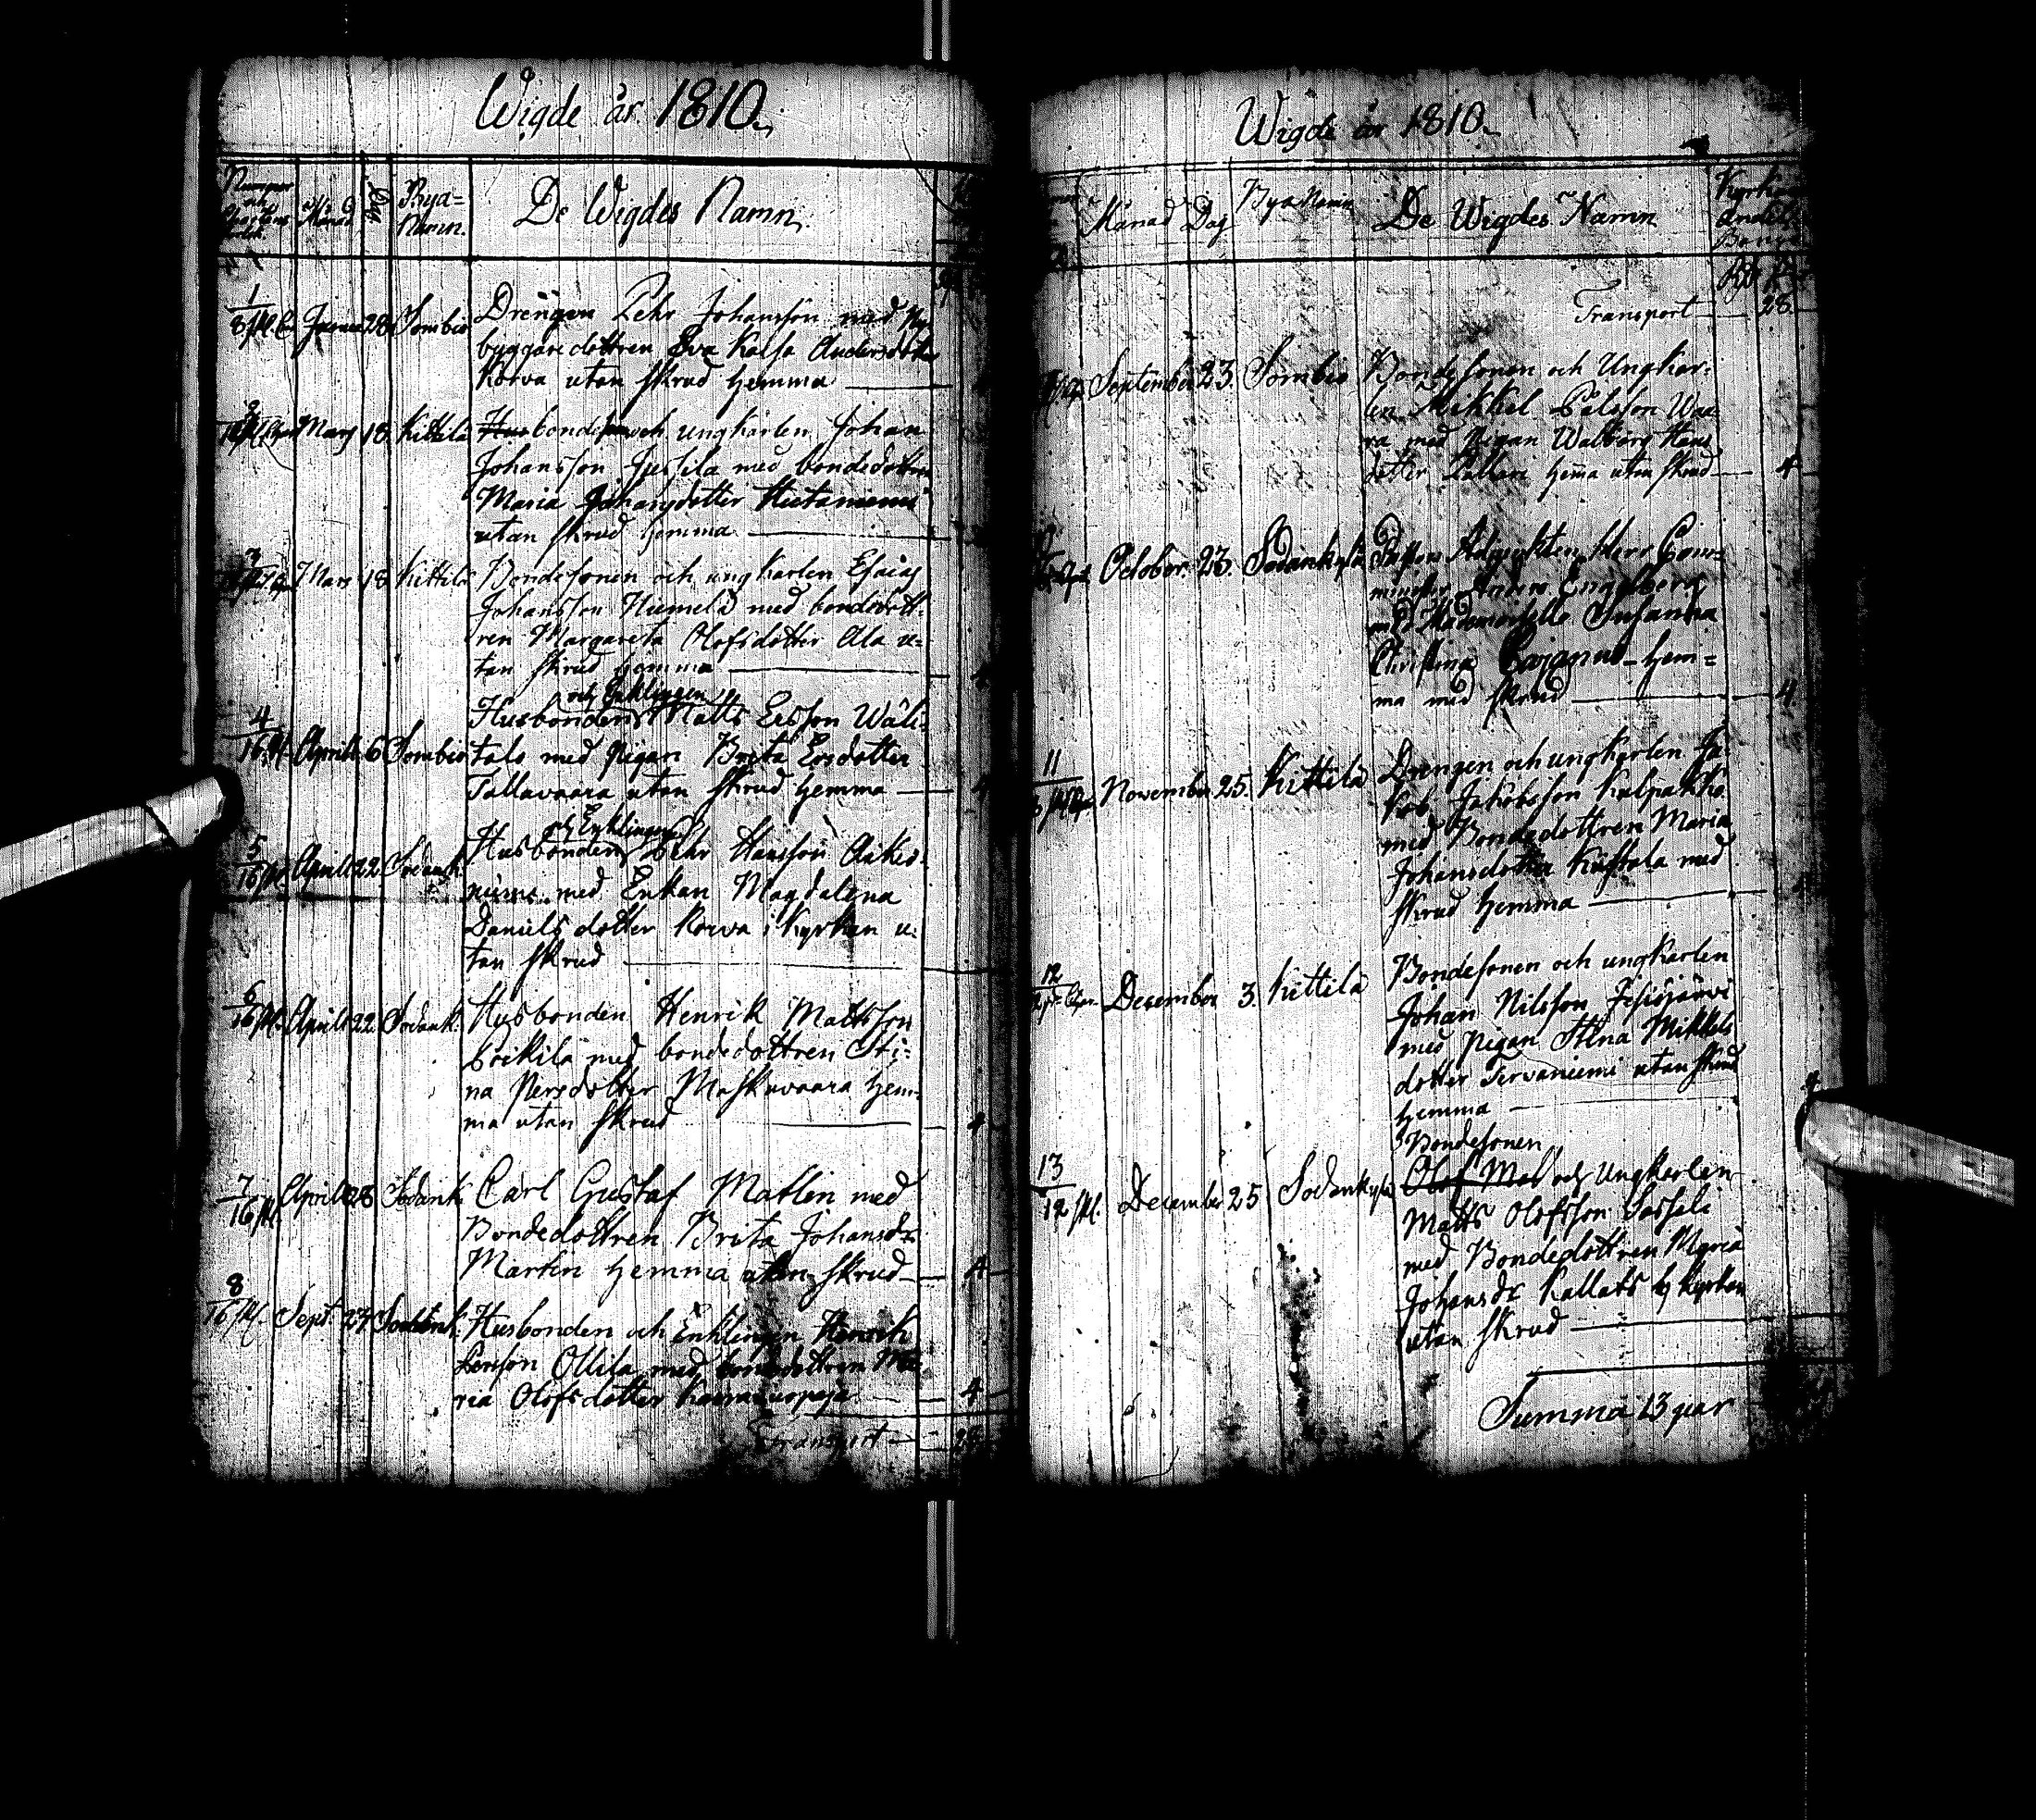 Wigde år 1810.
Månad
Bya=
Namn.
De Wigdes Namn.
1
28 Sombio Drengen Pehr Johansson med Ny-
byggare dottren Eva Kaisa Andersdotter
Korva utan skrud hemma
2
Mars 18 Kittilä bonde och ungkarlen Johan
Johansson Jussila med bondedottren
Maria Johansdotter Hietaniemi
utan skrud hemma
3
Mars 18 Kittilä Bondesonen och ungkarlen Esaias
Johansson Niemelä med bondedott-
ren Margareta Olofsdotter Ala u-
tan skrud hemma
och Enklingen
4
16 Aprill 6 Sombio Husbonden Matts Ersson Wäli-
talo med pigan Brita Ersdotter
Tallavaara utan skrud hemma 4
och Enklingen
5
16 Aprill 22 Sodank. Husbonden Pehr Hansson
med Enkan Magdalena
Daniels dotter Korva i Kyrkan u-
tan skrud
6
16 Aprill 22 Sodank. Husbonden Henrik Mattsson
Poikila med bondedottren Sti-
na Persdotter Maskavaara hem-
ma utan skrud 4
7
16 Aprill 28 Sodank. Carl Gustaf Matlin med
Bondedottren Brita Johansdr
Martin hemma utan skrud 4
8
16 Sept. 23 Husbonden och Enklingen Henrik
Ollila med bondedottren Ma-
ria Olofsdotter 4
Transport 28
Wigde år 1810.
Månad Dag Bya Namn De Wigdes Namn
Transport 28.
September 23. Sombio Bondesonen och Ungkar-
len Mikkel Pålsson Waa-
ra med Pigan Walborg Hans
dotter hema utan skrud 4
October. 23. Sodankylä Adjunkten Herr Com-
minister Engelberg
med Mademoiselle Susanna
Christina Cajanus hem=
ma med skrud 4.
11
November 25. Kittilä Drengen och ungkarlen Ja-
kob Jakobsson Kulpakko
med Bondedottren Maria
Johansdotter med
skrud hemma
12
December 3. Kittilä Bondesonen och ungkarlen
Johan Nilsson Jesiöjärvi
med pigan Stina Mikkels
dotter Tervaniemi utan skrud
hemma 4
Bondesonen
13
12 December 25 Sodankylä och Ungkarlen
Matts Olofsson Sassali
med Bondedottren Maria
Johansdr i kyrkan
utan skrud
Summa 13 par